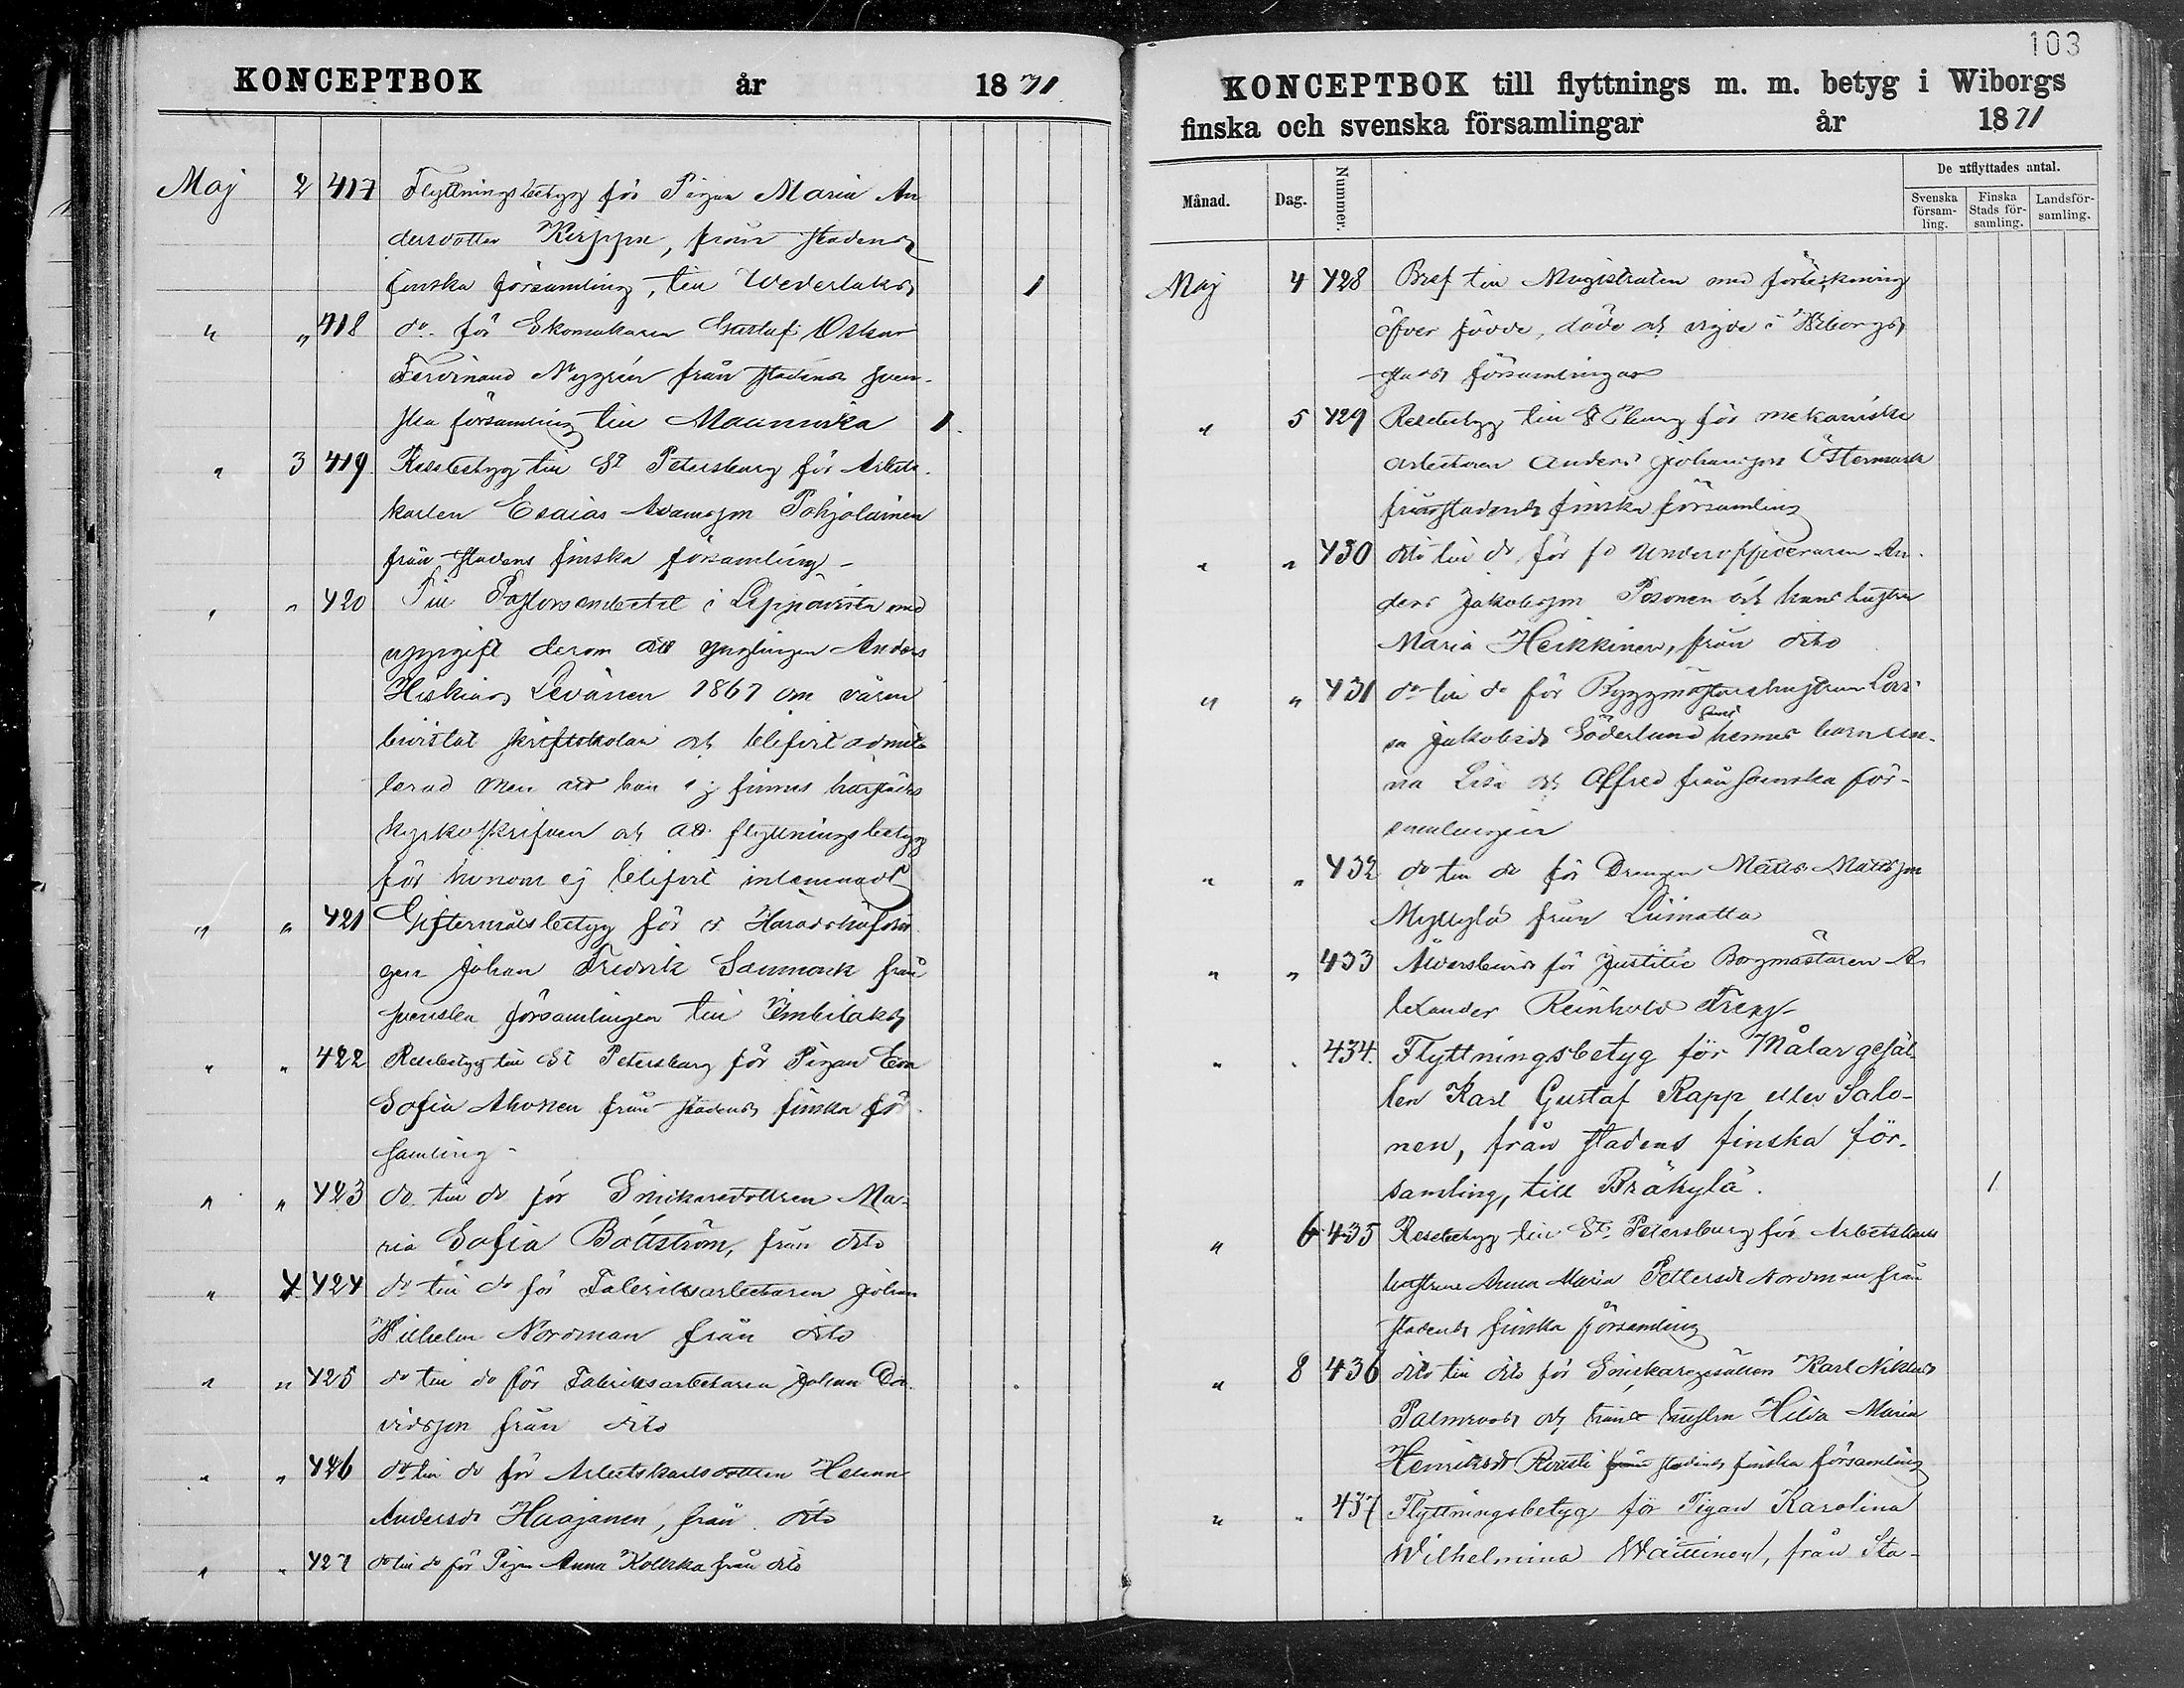 KONCEPTBOK år 1871
Maj 2 417 Flyttningsbetyg för Pigan Maria An
dersdotter Kerppu, från stadens
finska församling, till Wederlaks 1
" " 418 do. för Skomakaren Gustaf Oskar
Ferdinand Nygrén från stadens sven-
ska församling till Maaninka 1.
" 3 419. Resebetyg till St Petersburg för Arbets-
karlen Esaias Adamsson Pohjolainen
från stadens finska församling -
" " 420 Till Pastorsembetet i Leppävirta med
uppgift derom att ynglingen Anders
Hiskias Levänen 1867 om våren
bivistat skriftskolan och blifvit admit-
terad men att han ej finnes härstädes
kyrkoskrifven och att flyttningsbetyg
för honom ej blifvit inlemnadt
" " 421 Giftermålsbetyg för v. Häradshöfdin-
gen Johan Fredrik Sanmark från
svenska församlingen till Kimbilaks
" " 422 Resebetyg till St Petersburg för Pigan Eva
Sofia Ahonen från stadens finska för
samling -
" " 423 do. till do för Snickaredottren Ma-
ria Sofia Bottström, från dito
" 4 424 do till do för Fabriksarbetaren Johan
Wilhelm Nordman från dito
" " 425 do till do för Fabriksarbetaren Johan Da-
vidsson från dito
" " 426 do till do för Arbetskarlsdottren Helena
Andersdr Haajanen, från dito
" " 427 do till do för Pigan Anna Kollrka från dito
103
KONCEPTBOK till flyttnings m. m. betyg i Wiborgs
finska och svenska församlingar år 1871
Månad. Dag. Nummer. De utflyttades antal.
Svenska församling. Finska Stads församling. Landsförsamling.
Maj 4 428 Bref till Magistraten med förteckning
öfver födde, döde och vigde i Wiborgs
stads församlingar
" 5 429 Resebetyg till St Pburg för mekaniske
arbetaren Anders Johansson Östermark
från stadens finska församling
" " 430 dito till do för fd Underofficeraren An-
ders Jakobsson Posonen och hans hustru
Maria Heikkinen, från dito
" " 431 do till do för Byggmästarehustrun Lovi-
sa Jakobsdr Söderlund samt hennes barn
na Lisi och Alfred från svenska för-
samlingen
" " 432 do till do för Drengen Matts Mattsson
Myllylä från Liimatta
" " 433 Åldersbevis för Justitie Borgmästaren A-
lexander Reinhold Frey -
" " 434. Flyttningsbetyg för Målargesäl
len Karl Gustaf Rapp eller Salo-
nen, från stadens finska för-
samling, till Bräkylä. 1
" 6 435 Resebetyg till St. Petersburg för Arbetskarls
hustrun Anna Maria Pettersdr Nordman från
stadens finska församling
" 8 436 dito till dito för Snickaregesällen Karl Niklas
Palmroos och hans hustru Hilda Maria
Henriksdr Rousti från stadens finska församling
" " 437 Flyttningsbetyg för Pigan Karolina
Wilhelmina Waittinen, från Sta-